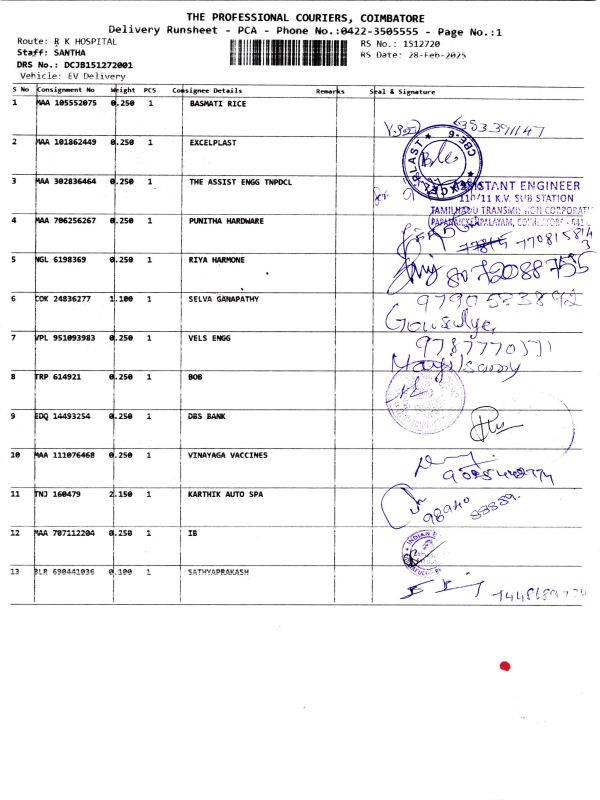 THE PROFESSIONAL COURIERS, COIMBATORE
Delivery Runsheet - PCA - Phone No.:0422-3505555 - Page No.:1
Route: R K HOSPITAL
RS No.: 1512720
Staff: SANTHA
RS Date: 28-Feb-2025
DRS No.: DCJB151272001
Vehicle: EV Delivery
S No Consignment No Weight PCS Consignee Details Remarks Seal & Signature
1 MAA 105552075 0.250 1 BASMATI RICE
6383391147
2 MAA 101862449 0.250 1 EXCELPLAST
CBE-6
3 MAA 302836464 0.250 1 THE ASSIST ENGG TNPDCL
ASSISTANT ENGINEER
110/11 K.V. SUB STATION
4 MAA 706256267 0.250 1 PUNITHA HARDWARE
5 NGL 6198369 0.250 1 RIYA HARMONE
6 COK 24836277 1.100 1 SELVA GANAPATHY
9790533892
7 VPL 951093983 0.250 1 VELS ENGG
9787770571
8 TRP 614921 0.250 1 BOB
9 EDQ 14493254 0.250 1 DBS BANK
10 MAA 111076468 0.250 1 VINAYAGA VACCINES
11 TNJ 160479 2.150 1 KARTHIK AUTO SPA
12 MAA 707112204 0.250 1 IB
13 BLR 690441036 0.100 1 SATHYAPRAKASH